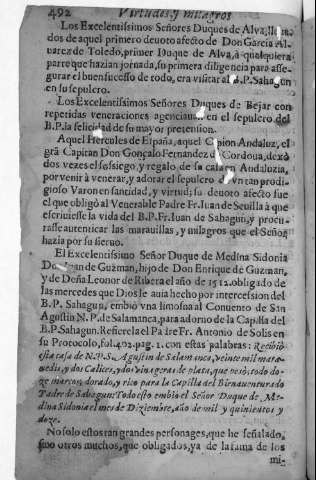 492 Virtudes, y milagros
Los Excelentissimos Señores Duques de Alva,
dos de aquel primer devoto afecto de Don Garcia Al-
varez de Toledo, primer Duque de Alva, à qualquiera
parte que hazian jornada, su primera diligencia para asse-
gurar el buen sucesso de todo, era visitar al B.P. Sahagun
en su sepulcro.
Los Excelentissimos Señores Duques de Bejar con
repetidas veneraciones en el sepulcro del
B.P. la felicidad de su mayor pretension.
Aquel Hercules de España, aquel Andaluz, el
grã Capitan Don Gonçalo Fernandez de Cordoua, dexò
dos vezes el sossiego, y regalo de su casa en Andaluzia,
por venir à venerar, y adorar el sepulcro d vn tan prodi-
gioso Varon en santidad, y virtud; su deuoto afecto fue
el que obligò al Venerable Padre Fr. Iuan de Seuilla à que
escriuiesse la vida del B.P.Fr. Iuan de Sahagun, y procu-
rasse autenticar las marauillas, y milagros que el Señor
hazia por su sieruo.
El Excelentissimo Señor Duque de Medina Sidonia
de Guzman, hijo de Don Enrique de Guzman,
y de Doña Leonor de Ribera el año de 1512. obligado de
las mercedes que Dios le auia hecho por intercession del
B.P. Sahagun, embiò vna limosna al Conuento de San
Agustin N.P. de Salamanca, para adorno de la Capilla del
B.P. Sahagun. Refierela el Padre Fr. Antonio de Solis en
su Protocolo, fol. 402. pag. 1. con estas palabras: Recibiò
esta casa de N.P.S. Agustin de Salamanca, veinte mil mara-
uedis, y dos Calices, y dos vinageras de plata, que pesò todo do-
ze marcos, dorado, y rico para la Capilla del Bienauenturado
Padre de Sahagun: Todo esto embiò el Señor Duque de Me-
dina Sidonia el mes de Diziembre, año de mil y quinientos y
doze.
No solo estos tan grandes personages, que he señalado,
sino otros muchos, que obligados, ya de la fama de los
mi-